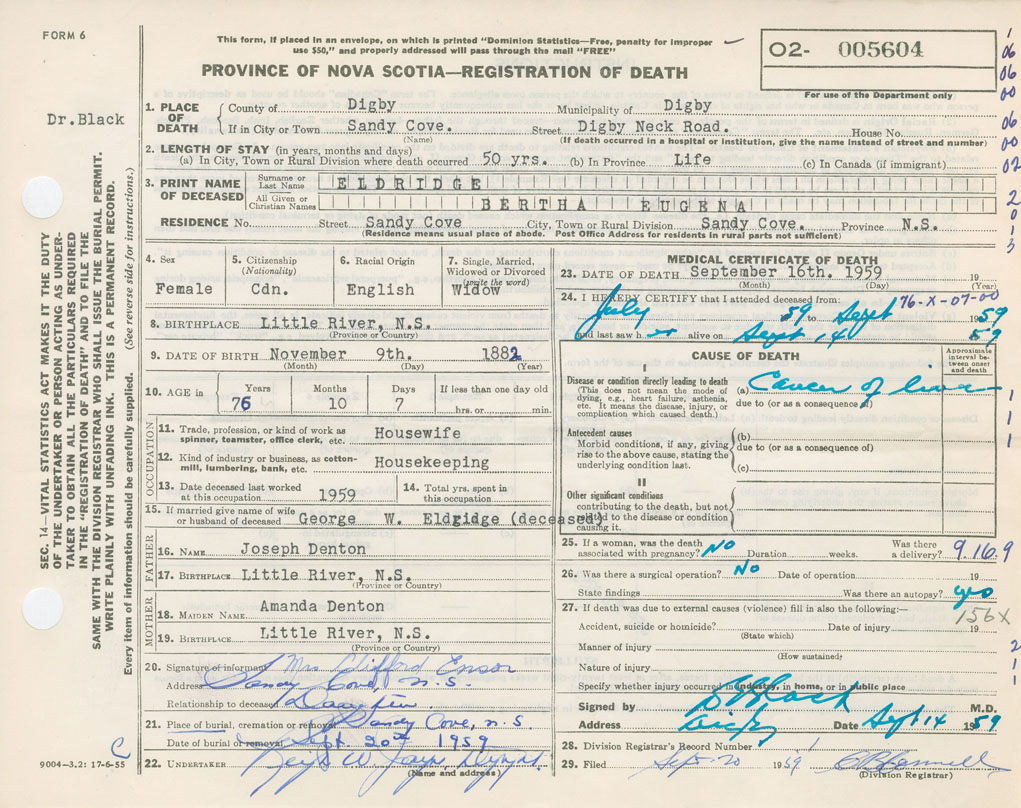 FORM 6
This form, if placed in an envelope, on which is printed "Dominion Statistics—Free, penalty for improper
use $50," and properly addressed will pass through the mail "FREE"
O2- 005604
For use of the Department only
PROVINCE OF NOVA SCOTIA—REGISTRATION OF DEATH
Dr. Black
SEC. 14—VITAL STATISTICS ACT MAKES IT THE DUTY
OF THE UNDERTAKER OR PERSON ACTING AS UNDER-
TAKER TO OBTAIN ALL THE PARTICULARS REQUIRED
IN THE "REGISTRATION OF DEATH" AND TO FILE THE
SAME WITH THE DIVISION REGISTRAR WHO SHALL ISSUE THE BURIAL PERMIT.
WRITE PLAINLY WITH UNFADING INK. THIS IS A PERMANENT RECORD.
Every item of information should be carefully supplied. (See reverse side for instructions.)
1. PLACE OF DEATH
County of Digby Municipality of Digby
If in City or Town Sandy Cove. Street Digby Neck Road. House No.
(Name) (If death occurred in a hospital or institution, give the name instead of street and number)
2. LENGTH OF STAY (in years, months and days)
(a) In City, Town or Rural Division where death occurred 50 yrs. (b) In Province Life (c) In Canada (if immigrant)
3. PRINT NAME OF DECEASED
Surname or Last Name ELDRIDGE
All Given or Christian Names BERTHA EUGENA
RESIDENCE No. Street Sandy Cove City, Town or Rural Division Sandy Cove. Province N.S.
(Residence means usual place of abode. Post Office Address for residents in rural parts not sufficient)
4. Sex
Female
5. Citizenship
(Nationality)
Cdn.
6. Racial Origin
English
7. Single, Married,
Widowed or Divorced
(write the word)
Widow
8. BIRTHPLACE Little River, N.S.
(Province or Country)
9. DATE OF BIRTH November 9th. 1882
(Month) (Day) (Year)
10. AGE in
Years Months Days If less than one day old
76 10 7 hrs. or min.
OCCUPATION
11. Trade, profession, or kind of work as
spinner, teamster, office clerk, etc. Housewife
12. Kind of industry or business, as cotton-
mill, lumbering, bank, etc. Housekeeping
13. Date deceased last worked
at this occupation 1959
14. Total yrs. spent in
this occupation
15. If married give name of wife
or husband of deceased George W. Eldridge (deceased)
FATHER
16. NAME Joseph Denton
17. BIRTHPLACE Little River, N.S.
(Province or Country)
MOTHER
18. MAIDEN NAME Amanda Denton
19. BIRTHPLACE Little River, N.S.
(Province or Country)
20. Signature of informant Mrs Clifford Ensor
Address Sandy Cove, N.S.
Relationship to deceased Daughter
21. Place of burial, cremation or removal Sandy Cove, N.S
Date of burial or removal Sept. 20th 1959
22. UNDERTAKER
(Name and address)
9004-3.2: 17-6-55
MEDICAL CERTIFICATE OF DEATH
23. DATE OF DEATH September 16th. 1959 19
(Month) (Day) (Year)
76-X-07-00
24. I HEREBY CERTIFY that I attended deceased from:
July 59 to Sept 1959
and last saw her alive on Sept 14 59
CAUSE OF DEATH
Approximate interval between onset and death
I
Disease or condition directly leading to death
(This does not mean the mode of
dying, e.g., heart failure, asthenia,
etc. It means the disease, injury, or
complication which caused death.)
(a) Cancer of liver
due to (or as a consequence of)
Antecedent causes
Morbid conditions, if any, giving
rise to the above cause, stating the
underlying condition last.
(b)
due to (or as a consequence of)
(c)
II
Other significant conditions
contributing to the death, but not
related to the disease or condition
causing it.
25. If a woman, was the death
associated with pregnancy? NO Duration weeks. Was there
a delivery?
9.16.9
26. Was there a surgical operation? NO Date of operation 19
State findings Was there an autopsy? yes
156X
27. If death was due to external causes (violence) fill in also the following:—
Accident, suicide or homicide? Date of injury 19
(State which)
Manner of injury
(How sustained)
Nature of injury
Specify whether injury occurred in industry, in home, or in public place
Signed by Black M.D.
Address Digby Date Sept 14 1959
28. Division Registrar's Record Number 1
29. Filed Sept. 20 1959
(Division Registrar)
1
06
06
00
06
00
02
2
0
1
3
1
1
1
2
1
1